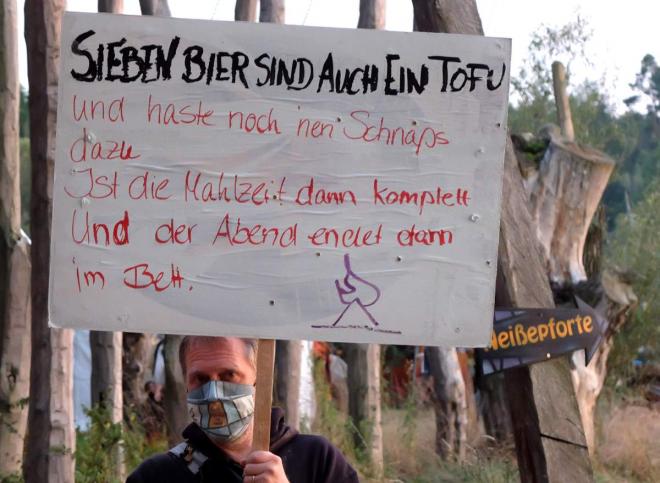 SIEBEN BIER SIND AUCH EIN TOFU
und haste noch nen Schnaps
dazu
Ist die Mahlzeit dann komplett
Und der Abend endet dann
im Bett.
Neißepforte